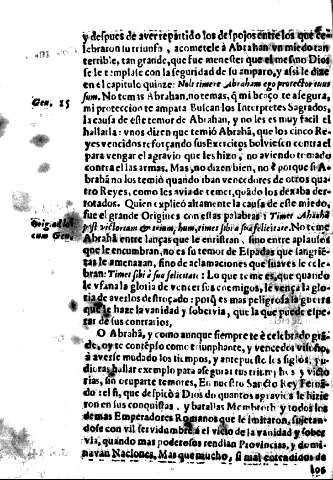 y despues de aver repartido los despojos entre los que ce-
lebraron tu triunfo, acometele à Abrahan vn miedo tan
terrible, tan grande, que fue menester que el mesmo Dios
se le templasse con la seguridad de su amparo, y assi le dize
en el capitulo quinze: Noli timere Abraham ego protector tuus
Gen. 15
sum. No temas Abrahan, no temas, q̃ mi braço te assegura,
mi proteccion te ampara Buscan los Interpretes Sagrados,
la causa de este temor de Abrahan, y no les es muy facil el
hallarla: vnos dizen que temió Abrahã, que los cinco Re-
yes vencidos reforçando sus Exercitos bolviessen contra el
para vengar el agravio que les hizo, no aviendo tomado
contra el las armas. Mas, no dizen bien, no è porque si A-
brahã no los temió quando iban vencedores de otros qua-
tro Reyes, como les avia de temer, quãdo los dexaba der-
rotados. Quien explicò altamente la causa de este miedo,
fue el grande Origines con estas palabras: Timet Abrahã
Orig. ad locum Gen.
post victoriam timet sibi à sua felicitate. No teme
Abrahã entre lanças que le enristran, sino entre aplausos
que le encumbran, no es su temor de Espadas que sangriẽ-
tas le amenazan, sino de aclamaciones que suaves le cele-
bran: Timet sibi à sua felicitate: Lo que teme es, que quando
le vfana la gloria de vencer sus enemigos, le vença la glo-
ria de averlos destroçado: porq̃ es mas peligrosa la guerra
que le haze la vanidad y sobervia, que la que puede espe-
rar de sus contrarios,
O Abrahã, y como aunque siempre te è celebrado grã-
de, oy te contẽplo como triunphante, y vencedor
à averse mudado los tiempos, y antepuesto los siglos, pu-
dieras hallar exemplo para assegurar tus y victo-
rias, sin ocuparte temores, En nuestro Santo Rey Ferna-
do que despidiò à Dios de quantos agravios le hizie
ron en sus conquistas, y batallas Membroth y todos los
demas Emperadores Romanos que le imitaron, sujetan-
dose con vil servidumbre à el vicio de la vanidad y sober-
via, quando mas poderosos rendian Provincias, y domi-
navan Naciones, Mas que mucho, si mal entendidos de
los